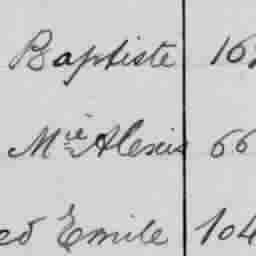 Baptiste 16
Mie Alexis 66
ed Emile 104